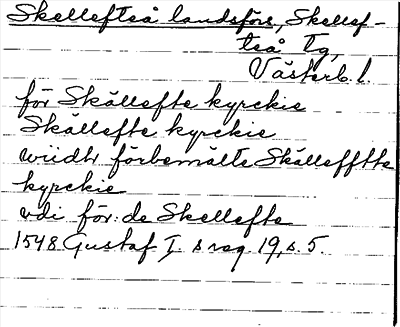 Skellefteå landsförs, Skellef-
teå tg,
Västerb. l.
för Skällefte kyrckie
Skällefte kyrckie
wiidtr förbemälte Skällefftte
kyrckie
vdi för: de Skellefte
1548 Gustaf I s reg 19, s. 5.